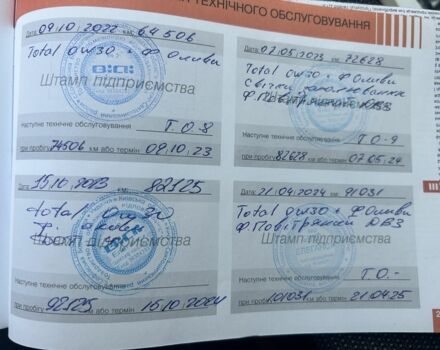 ТЕХНІЧНОГО ОБСЛУГОВУВАННЯ
Дата 09.10.2022 км. 64 506
Total 0w30 + Ф Оливи
Штамп підприємства
Наступне технічне обслуговування Т.О-8
при пробігу 74506 км або термін 09.10.23
Дата 02.05.2023 км. 72628
Total 0w30 + Ф Оливи
Свічки запалювання
Ф. Повітряний ДВЗ
Штамп підприємства
Наступне технічне обслуговування ТО-9
при пробігу 82628 км або термін 07.05.24
Дата 15.10.2023 км. 82125
total 0w30
Штамп підприємства
Наступне технічне обслуговування
при пробігу 92125 км або термін 15.10.2024
Дата 21.04.2024 км. 91031
Total 0w30 + Ф Оливи
Ф. Повітряний ДВЗ
Штамп підприємства
Наступне технічне обслуговування Т.О.-
при пробігу 101031 км або термін 21.04.25